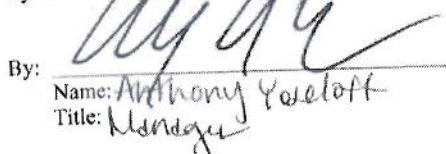 By:
Name: Anthony Yoseloff
Title: Manager